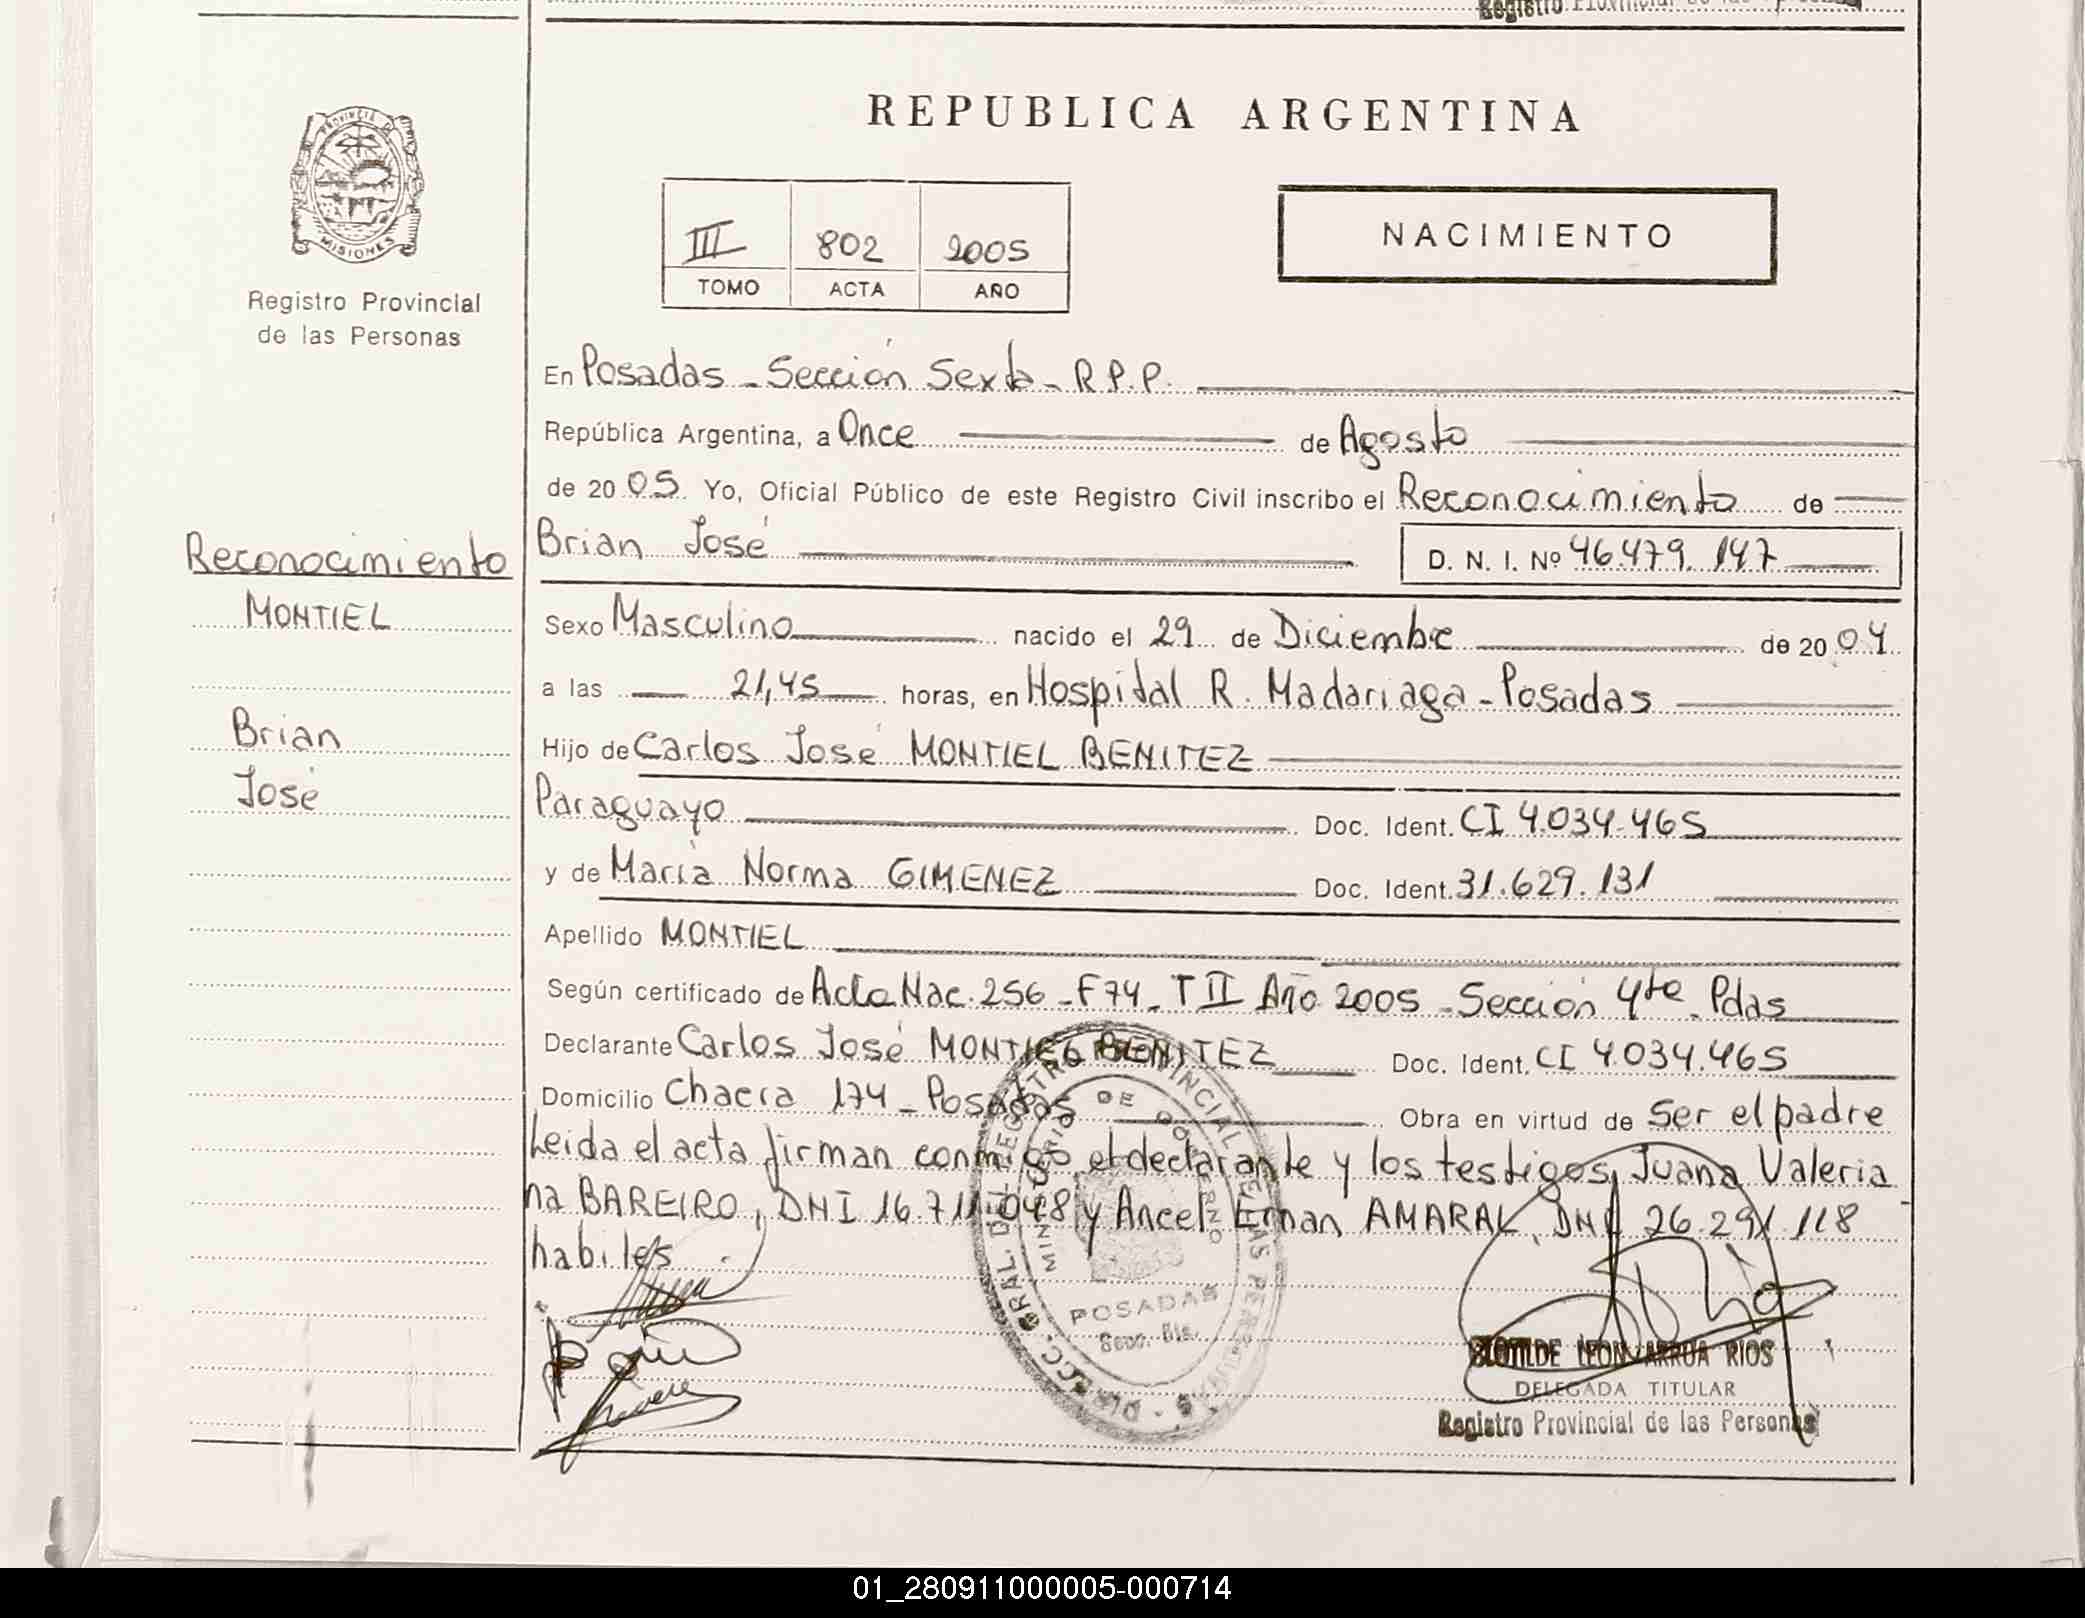 REPUBLICA ARGENTINA
PROVINCIA DE
MISIONES
Registro Provincial
de las Personas
III 802 2005
TOMO ACTA AÑO
NACIMIENTO
En Posadas - Sección Sexta - R.P.P.
República Argentina, a Once de Agosto
de 2005 Yo, Oficial Público de este Registro Civil inscribo el Reconocimiento de
Brian José D. N. I. Nº 46.479.147
Reconocimiento
MONTIEL
Brian
José
Sexo Masculino nacido el 29 de Diciembre de 2004
a las 21,45 horas, en Hospital R. Madariaga - Posadas
Hijo de Carlos José MONTIEL BENITEZ
Paraguayo Doc. Ident. CI 4.034.465
y de María Norma GIMENEZ Doc. Ident. 31.629.131
Apellido MONTIEL
Según certificado de Acta Nac. 256 - F 74 - T II Año 2005 - Sección 4ta - Pdas
Declarante Carlos José MONTIEL BENITEZ Doc. Ident. CI 4.034.465
Domicilio Chacra 174 - Posadas Obra en virtud de Ser el padre
Leida el acta firman conmigo el declarante y los testigos, Juana Valeria
na BAREIRO, DNI 16.711.048 y Ancel Ernan AMARAL, DNI 26.291.118
habiles
MINISTERIO DE GOBIERNO
POSADAS
CLOTILDE LEON ARRUA RIOS
DELEGADA TITULAR
Registro Provincial de las Personas
01_280911000005-000714